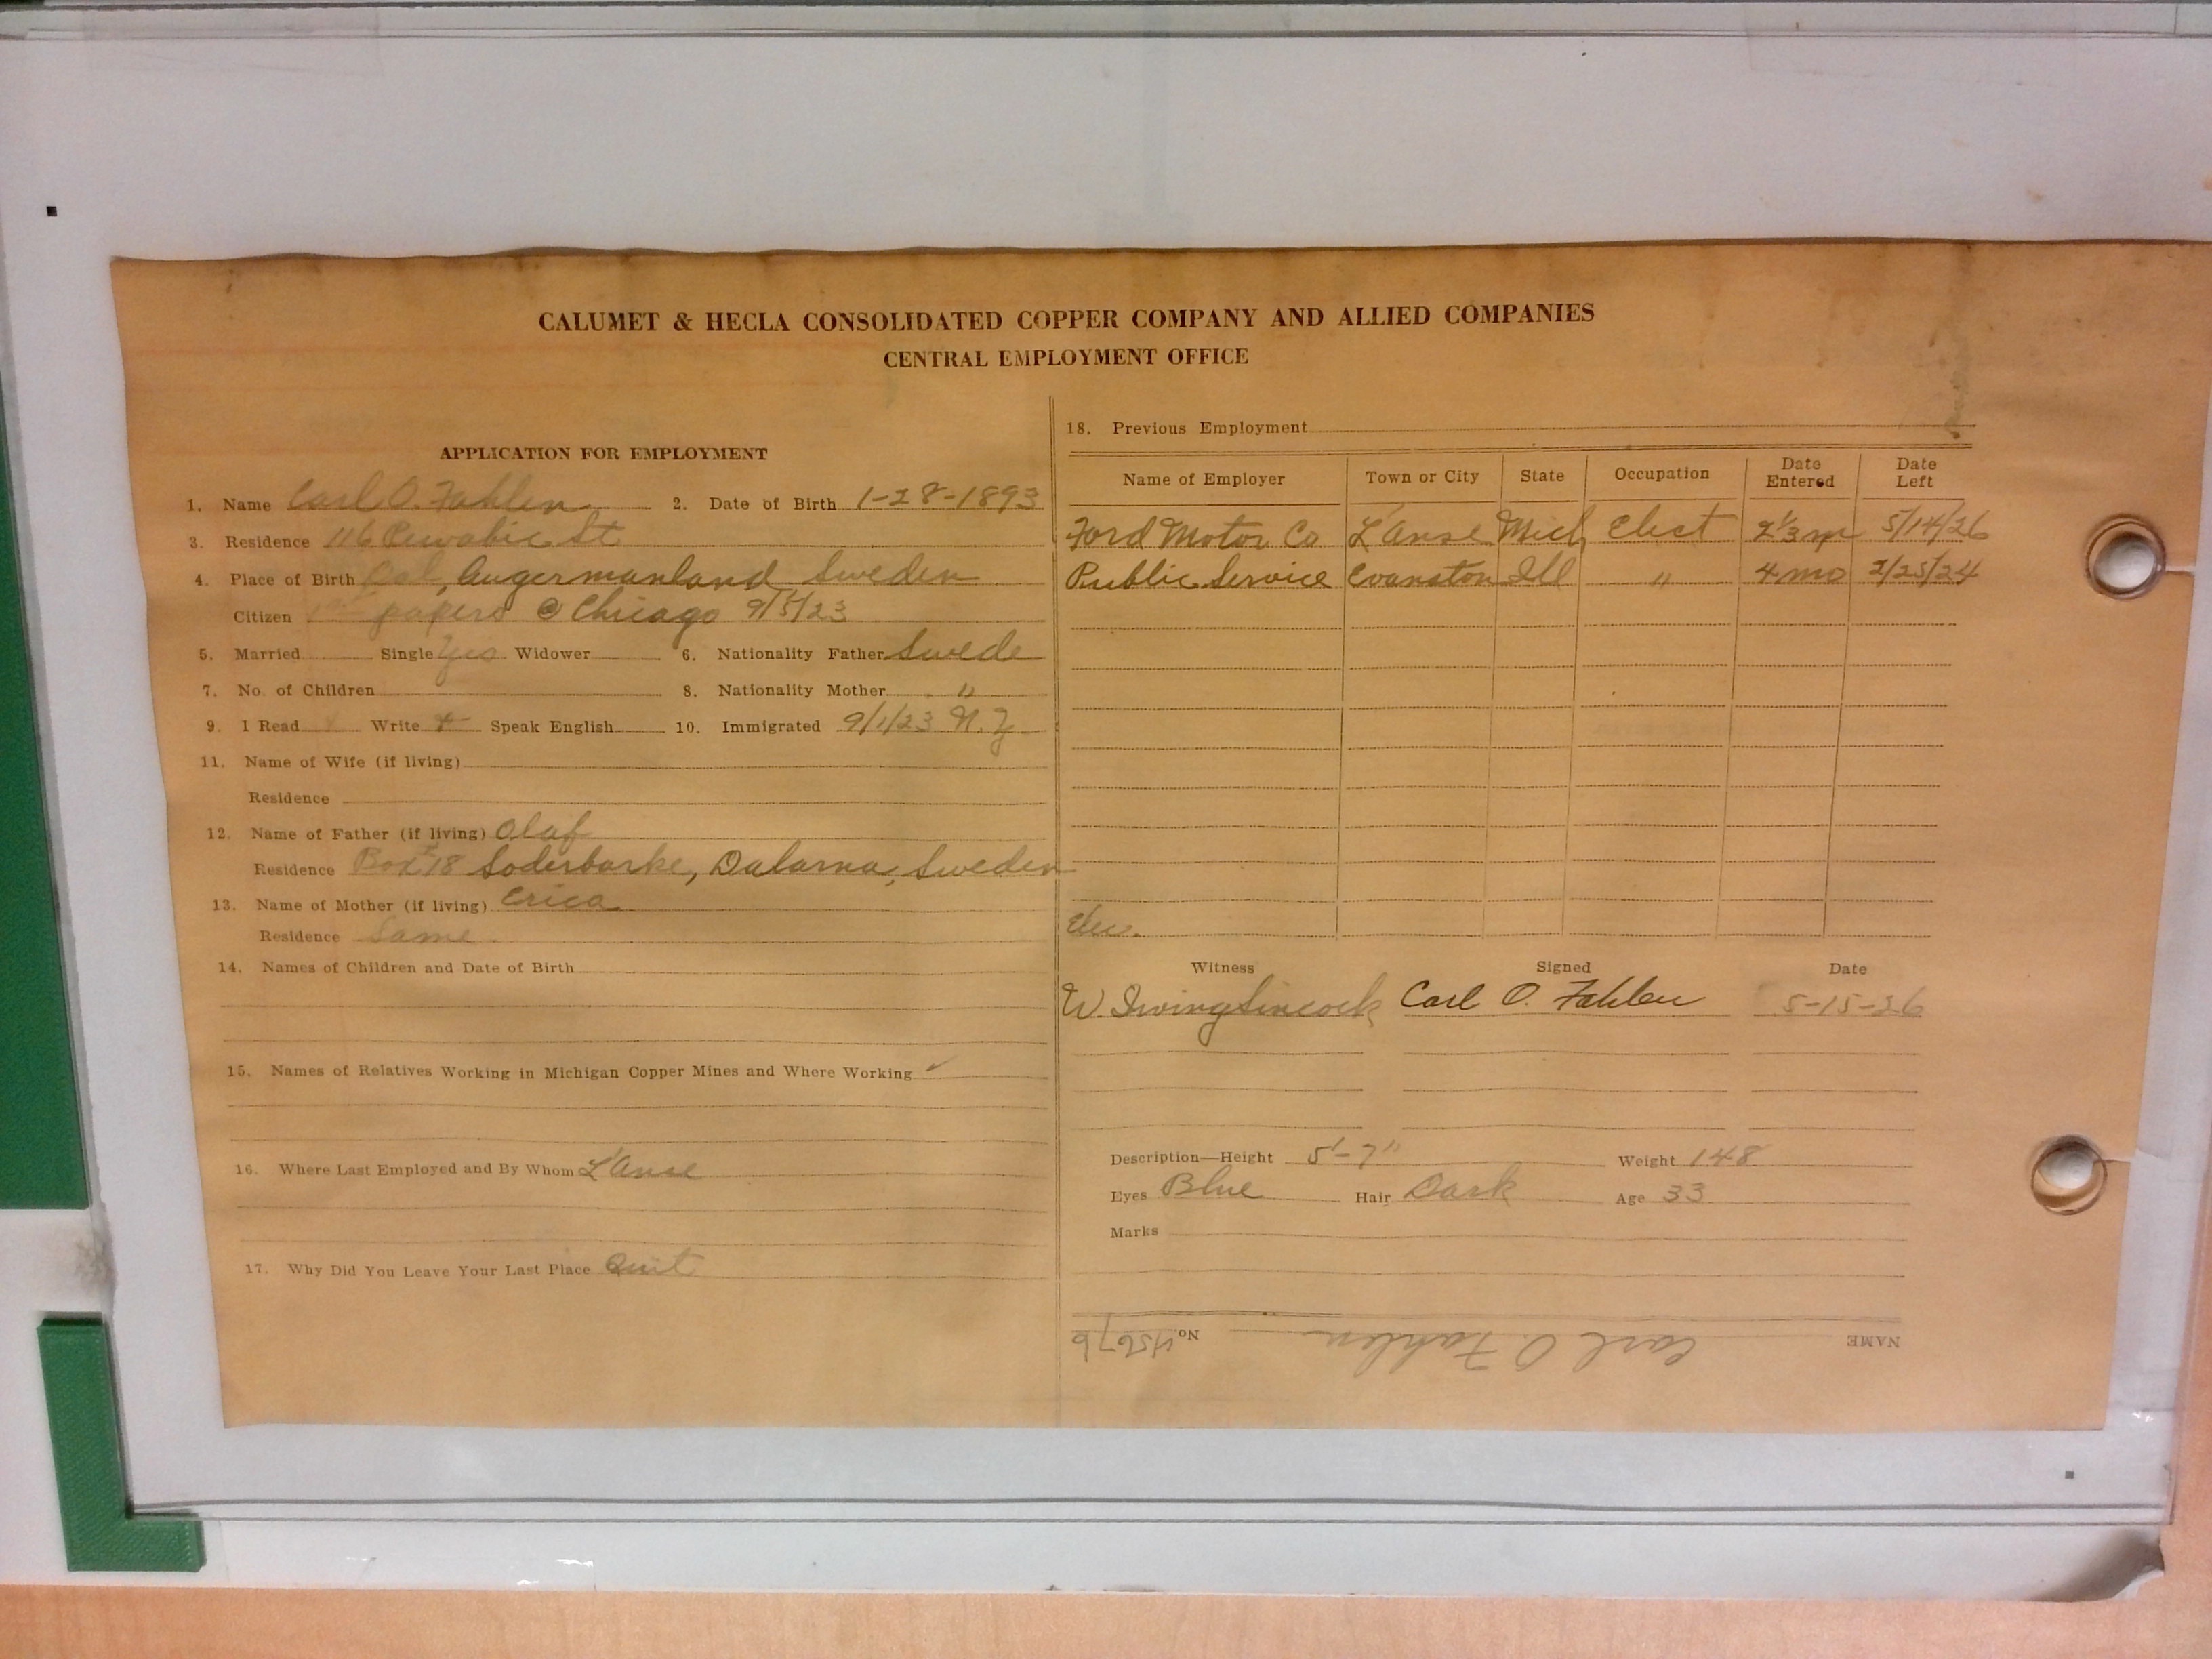 CALUMET & HECLA CONSOLIDATED COPPER COMPANY AND ALLIED COMPANIES
CENTRAL EMPLOYMENT OFFICE
APPLICATION FOR EMPLOYMENT
1. Name Carl O. Fahlen 2. Date of Birth 1-28-1893
3. Residence 116 Pewabic St
4. Place of Birth Dal, Angermanland Sweden
Citizen 1st papers @ Chicago 9/5/23
5. Married Single Yes Widower 6. Nationality Father Swede
7. No. of Children 8. Nationality Mother "
9. I Read Write Speak English 10. Immigrated 9/1/23 N.Y
11. Name of Wife (if living)
Residence
12. Name of Father (if living) Olaf
Residence Box 18 Soderbarke, Dalarna, Sweden
13. Name of Mother (if living) Erica
Residence Same
14. Names of Children and Date of Birth
15. Names of Relatives Working in Michigan Copper Mines and Where Working ✓
16. Where Last Employed and By Whom L'Anse
17. Why Did You Leave Your Last Place Quit
18. Previous Employment
Name of Employer Town or City State Occupation Date Entered Date Left
Ford Motor Co L'Anse Mich Elect 2 1/3 m 5/14/26
Public Service Evanston Ill " 4 mo 2/25/24
Elec.
Witness Signed Date
W. Irving Sincock Carl O. Fahlen 5-15-26
Description—Height 5'-7" Weight 148
Eyes Blue Hair Dark Age 33
Marks
NAME Carl O. Fahlen No. 45676